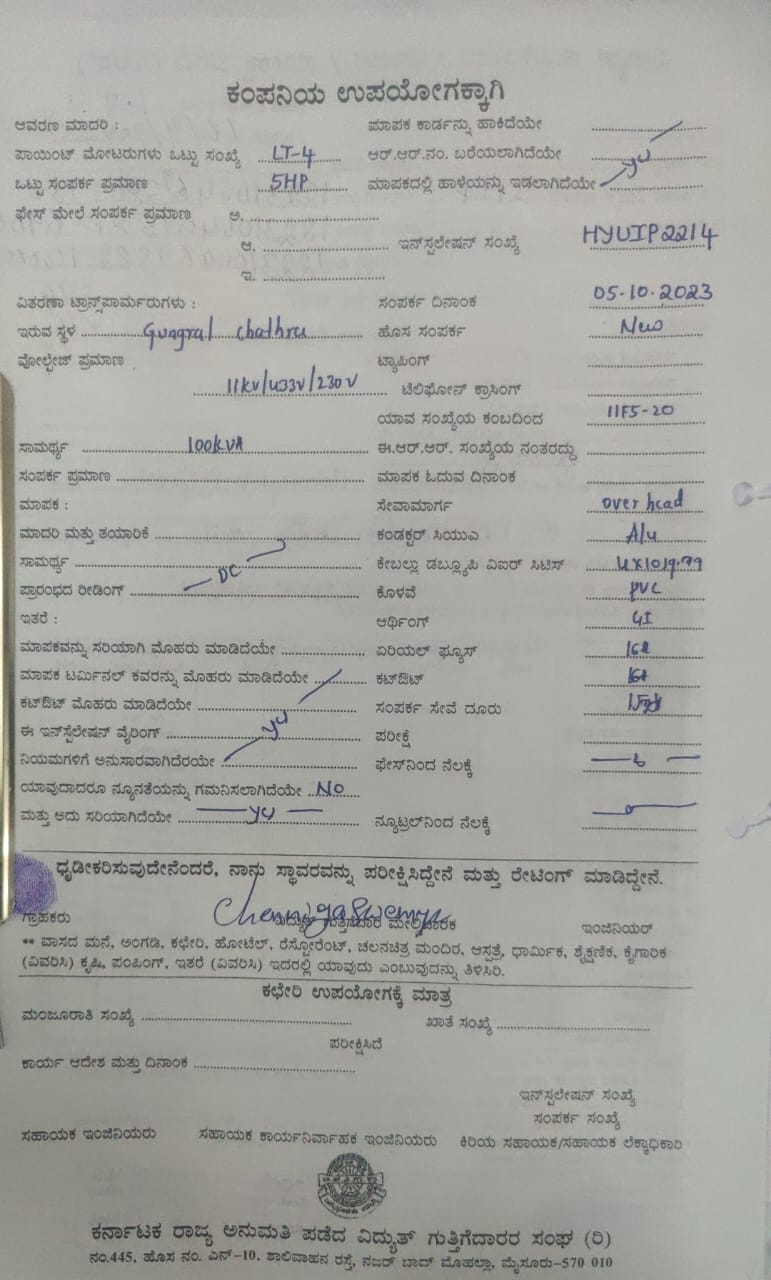 ಕಂಪನಿಯ ಉಪಯೋಗಕ್ಕಾಗಿ
ಆವರಣ ಮಾದರಿ : ಮಾಪಕ ಕಾರ್ಡನ್ನು ಹಾಕಿದೆಯೇ
ಪಾಯಿಂಟ್ ಮೋಟರುಗಳು ಒಟ್ಟು ಸಂಖ್ಯೆ LT-4 ಆರ್.ಆರ್.ನಂ. ಬರೆಯಲಾಗಿದೆಯೇ
ಒಟ್ಟು ಸಂಪರ್ಕ ಪ್ರಮಾಣ 5HP ಮಾಪಕದಲ್ಲಿ ಹಾಳೆಯನ್ನು ಇಡಲಾಗಿದೆಯೇ
ಫೇಸ್ ಮೇಲೆ ಸಂಪರ್ಕ ಪ್ರಮಾಣ ಅ.
ಆ. ಇನ್‌ಸ್ಟಲೇಷನ್ ಸಂಖ್ಯೆ HYUIP2214
ಇ.
ವಿತರಣಾ ಟ್ರಾನ್ಸ್‌ಪಾರ್ಮರುಗಳು : ಸಂಪರ್ಕ ದಿನಾಂಕ 05.10.2023
ಇರುವ ಸ್ಥಳ Gungral chathru ಹೊಸ ಸಂಪರ್ಕ New
ವೋಲ್ಟೇಜ್ ಪ್ರಮಾಣ ಟ್ಯಾಪಿಂಗ್
11KV/433V/230V ಟೆಲಿಫೋನ್ ಕ್ರಾಸಿಂಗ್
ಯಾವ ಸಂಖ್ಯೆಯ ಕಂಬದಿಂದ 11F5-20
ಸಾಮರ್ಥ್ಯ 100KVA ಈ.ಆರ್.ಆರ್. ಸಂಖ್ಯೆಯ ನಂತರದ್ದು
ಸಂಪರ್ಕ ಪ್ರಮಾಣ ಮಾಪಕ ಓದುವ ದಿನಾಂಕ
ಮಾಪಕ : ಸೇವಾಮಾರ್ಗ over head
ಮಾದರಿ ಮತ್ತು ತಯಾರಿಕೆ ಕಂಡಕ್ಟರ್ ಸಿಯುಎ Alu
ಸಾಮರ್ಥ್ಯ DC ಕೇಬಲ್ಲು ಡಬ್ಲ್ಯೂಪಿ ವಿಐಆರ್ ಸಿಟಿಸ್
ಪ್ರಾರಂಭದ ರೀಡಿಂಗ್ ಕೊಳವೆ PVC
ಇತರೆ : ಆರ್ಥಿಂಗ್ GI
ಮಾಪಕವನ್ನು ಸರಿಯಾಗಿ ಮೊಹರು ಮಾಡಿದೆಯೇ ಏರಿಯಲ್ ಫ್ಯೂಸ್ 16A
ಮಾಪಕ ಟರ್ಮಿನಲ್ ಕವರನ್ನು ಮೊಹರು ಮಾಡಿದೆಯೇ ಕಟ್‌ಔಟ್ 16A
ಕಟ್‌ಔಟ್ ಮೊಹರು ಮಾಡಿದೆಯೇ ಸಂಪರ್ಕ ಸೇವೆ ದೂರು
ಈ ಇನ್‌ಸ್ಟೆಲೇಷನ್ ವೈರಿಂಗ್ ಪರೀಕ್ಷೆ
ನಿಯಮಗಳಿಗೆ ಅನುಸಾರವಾಗಿದೆರಯೇ ಫೇಸ್‌ನಿಂದ ನೆಲಕ್ಕೆ
ಯಾವುದಾದರೂ ನ್ಯೂನತೆಯನ್ನು ಗಮನಿಸಲಾಗಿದೆಯೇ No
ಮತ್ತು ಅದು ಸರಿಯಾಗಿದೆಯೇ ನ್ಯೂಟ್ರಲ್‌ನಿಂದ ನೆಲಕ್ಕೆ
ಧೃಡೀಕರಿಸುವುದೇನೆಂದರೆ, ನಾನು ಸ್ಥಾವರವನ್ನು ಪರೀಕ್ಷಿಸಿದ್ದೇನೆ ಮತ್ತು ರೇಟಿಂಗ್ ಮಾಡಿದ್ದೇನೆ.
ಗ್ರಾಹಕರು ವಿದ್ಯುತ್ ಗುತ್ತಿಗೆದಾರ ಮೇಲ್ವಿಚಾರಕ ಇಂಜಿನಿಯರ್
** ವಾಸದ ಮನೆ, ಅಂಗಡಿ, ಕಛೇರಿ, ಹೋಟೆಲ್, ರೆಸ್ಟೋರೆಂಟ್, ಚಲನಚಿತ್ರ ಮಂದಿರ, ಆಸ್ಪತ್ರೆ, ಧಾರ್ಮಿಕ, ಶೈಕ್ಷಣಿಕ, ಕೈಗಾರಿಕ
(ವಿವರಿಸಿ) ಕೃಷಿ, ಪಂಪಿಂಗ್, ಇತರೆ (ವಿವರಿಸಿ) ಇದರಲ್ಲಿ ಯಾವುದು ಎಂಬುವುದನ್ನು ತಿಳಿಸಿರಿ.
ಕಛೇರಿ ಉಪಯೋಗಕ್ಕೆ ಮಾತ್ರ
ಮಂಜೂರಾತಿ ಸಂಖ್ಯೆ ಖಾತೆ ಸಂಖ್ಯೆ
ಪರೀಕ್ಷಿಸಿದೆ
ಕಾರ್ಯ ಆದೇಶ ಮತ್ತು ದಿನಾಂಕ
ಇನ್‌ಸ್ಟಲೇಷನ್ ಸಂಖ್ಯೆ
ಸಂಪರ್ಕ ಸಂಖ್ಯೆ
ಸಹಾಯಕ ಇಂಜಿನಿಯರು ಸಹಾಯಕ ಕಾರ್ಯನಿರ್ವಾಹಕ ಇಂಜಿನಿಯರು ಕಿರಿಯ ಸಹಾಯಕ/ಸಹಾಯಕ ಲೆಕ್ಕಾಧಿಕಾರಿ
ಕರ್ನಾಟಕ ರಾಜ್ಯ ಅನುಮತಿ ಪಡೆದ ವಿದ್ಯುತ್ ಗುತ್ತಿಗೆದಾರರ ಸಂಘ (ರಿ)
ನಂ.445, ಹೊಸ ನಂ. ಎನ್-10, ಶಾಲಿವಾಹನ ರಸ್ತೆ, ನಜರ್ ಬಾದ್ ಮೊಹಲ್ಲಾ, ಮೈಸೂರು-570 010